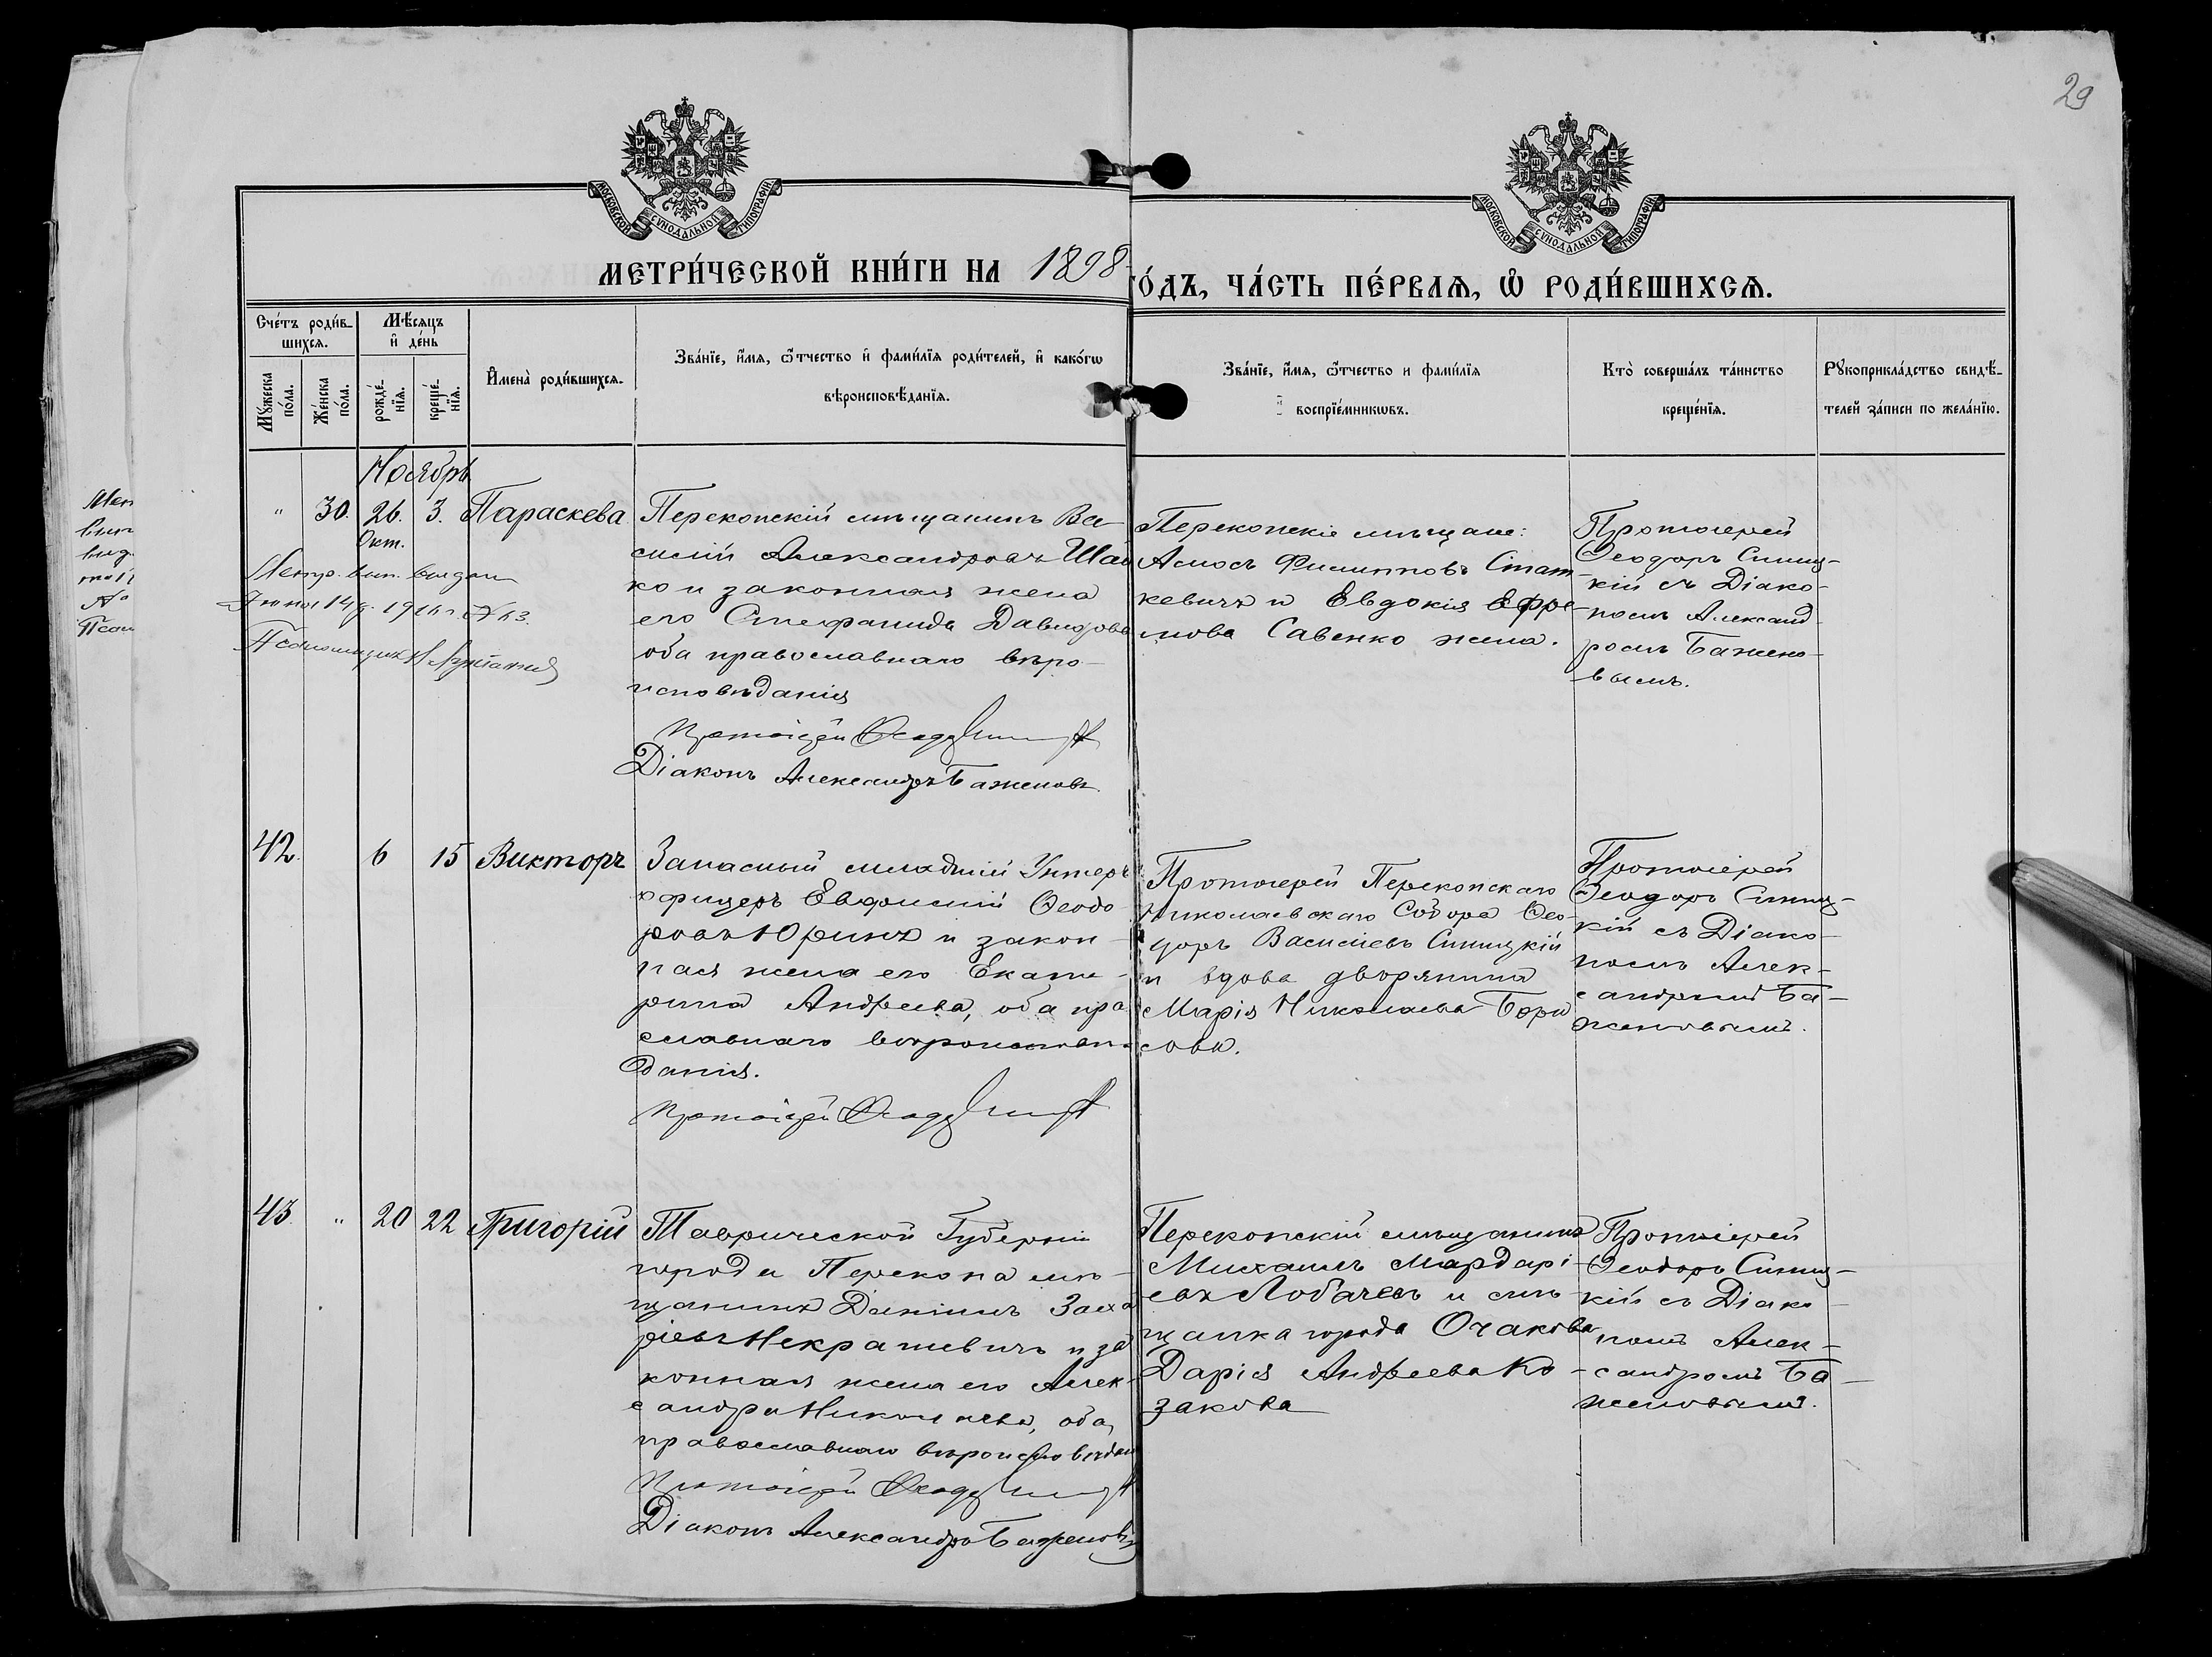 29
МОСКОВСКОЙ СѴНОДАЛЬНОЙ ТИПОГРАФІИ.
МОСКОВСКОЙ СѴНОДАЛЬНОЙ ТИПОГРАФІИ.
МЕТРИ́ЧЕСКОЙ КНИ́ГИ НА 1898 ГО́ДЪ, ЧА́СТЬ ПЕ́РВАѦ, Ѽ РОДИ́ВШИХСѦ.
Сче́тъ роди́в-
шихсѧ.
Мꙋжеска по́ла.
Же́нска по́ла.
Мѣ́сѧцъ
и҆ де́нь
рожде́-
нїѧ.
креще́-
нїѧ.
И҆мена̀ роди́вшихсѧ.
Зва́нїе, и҆́мѧ, ѻ҆́тчество и҆ фами́лїѧ роди́телей, и҆ како́гѡ
вѣроисповѣ́данїѧ.
Зва́нїе, и҆́мѧ, ѻ҆́тчество и фами́лїѧ
воспрїе́мникѡвъ.
Кто̀ соверша́лъ та́инство
креще́нїѧ.
Рꙋкоприкла́дство свидѣ́-
телей за́писи по жела́нїю.
Ноябрь
" 30. 26. 3. Параскева
Окт.
Метр. вып. выдан
Іюня 14 д. 191 г. №
Псаломщикъ
Перекопскій мѣщанинъ Ва-
силій Александровъ Шай
ко и законная жена
его Стефанида Давидова
оба православнаго вѣро-
исповѣданія
Протоіерей Ѳеодоръ Синицкій
Діаконъ Александръ Баженовъ.
Перекопскіе мѣщане:
Амосъ Филипповъ Стат-
кевичъ и Евдокія Ефре-
мова Савенко жена.
Протоіерей
Ѳеодоръ Синиц-
кій съ Діако-
номъ Александ-
ромъ Бажено-
вымъ.
42. 6 15 Викторъ
Запасный младшій Унтеръ
офицеръ Евфимій Ѳеодо-
ровъ Юринъ и закон-
ная жена его Екате-
рина Андреева, оба пра
славнаго вѣроисповѣ-
данія.
Протоіерей Ѳеодоръ Синицкій
Протоіерей Перекопскаго
Николаевскаго Собора Ѳео-
доръ Васильевъ Синицкій
и вдова дворянина
Марія Николаева Бори
сова.
Протоіерей
Ѳеодоръ Синиц-
кій съ Діако-
номъ Алек-
сандромъ Ба-
женовымъ.
43. " 20 22 Григорій
Таврической Губерніи
города Перекопа мѣ-
щанинъ Даніилъ Заха
ріевъ Некрашевичъ и за
конная жена его Алек-
сандра Николаева, оба
православнаго вѣроисповѣдан
Протоіерей Ѳеодоръ Синицкій
Діаконъ Александръ Баженовъ
Перекопскій мѣщанинъ
Михаилъ Мардарі-
евъ Лобачевъ и мѣ-
щанка города Очакова
Дарія Андреева Ко-
закова
Протоіерей
Ѳеодоръ Синиц-
кій съ Діако-
номъ Алек-
сандромъ Ба-
женовымъ.